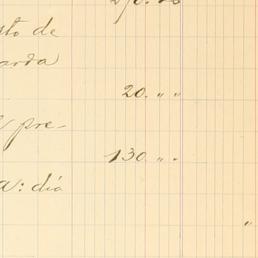 sto de
arda
20. " "
pre-
130 " "
a: día
"